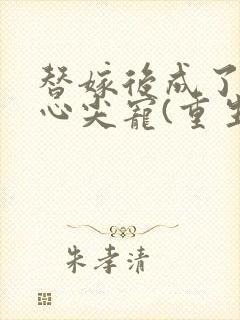 替嫁後成了
心尖寵(重生
朱孝清